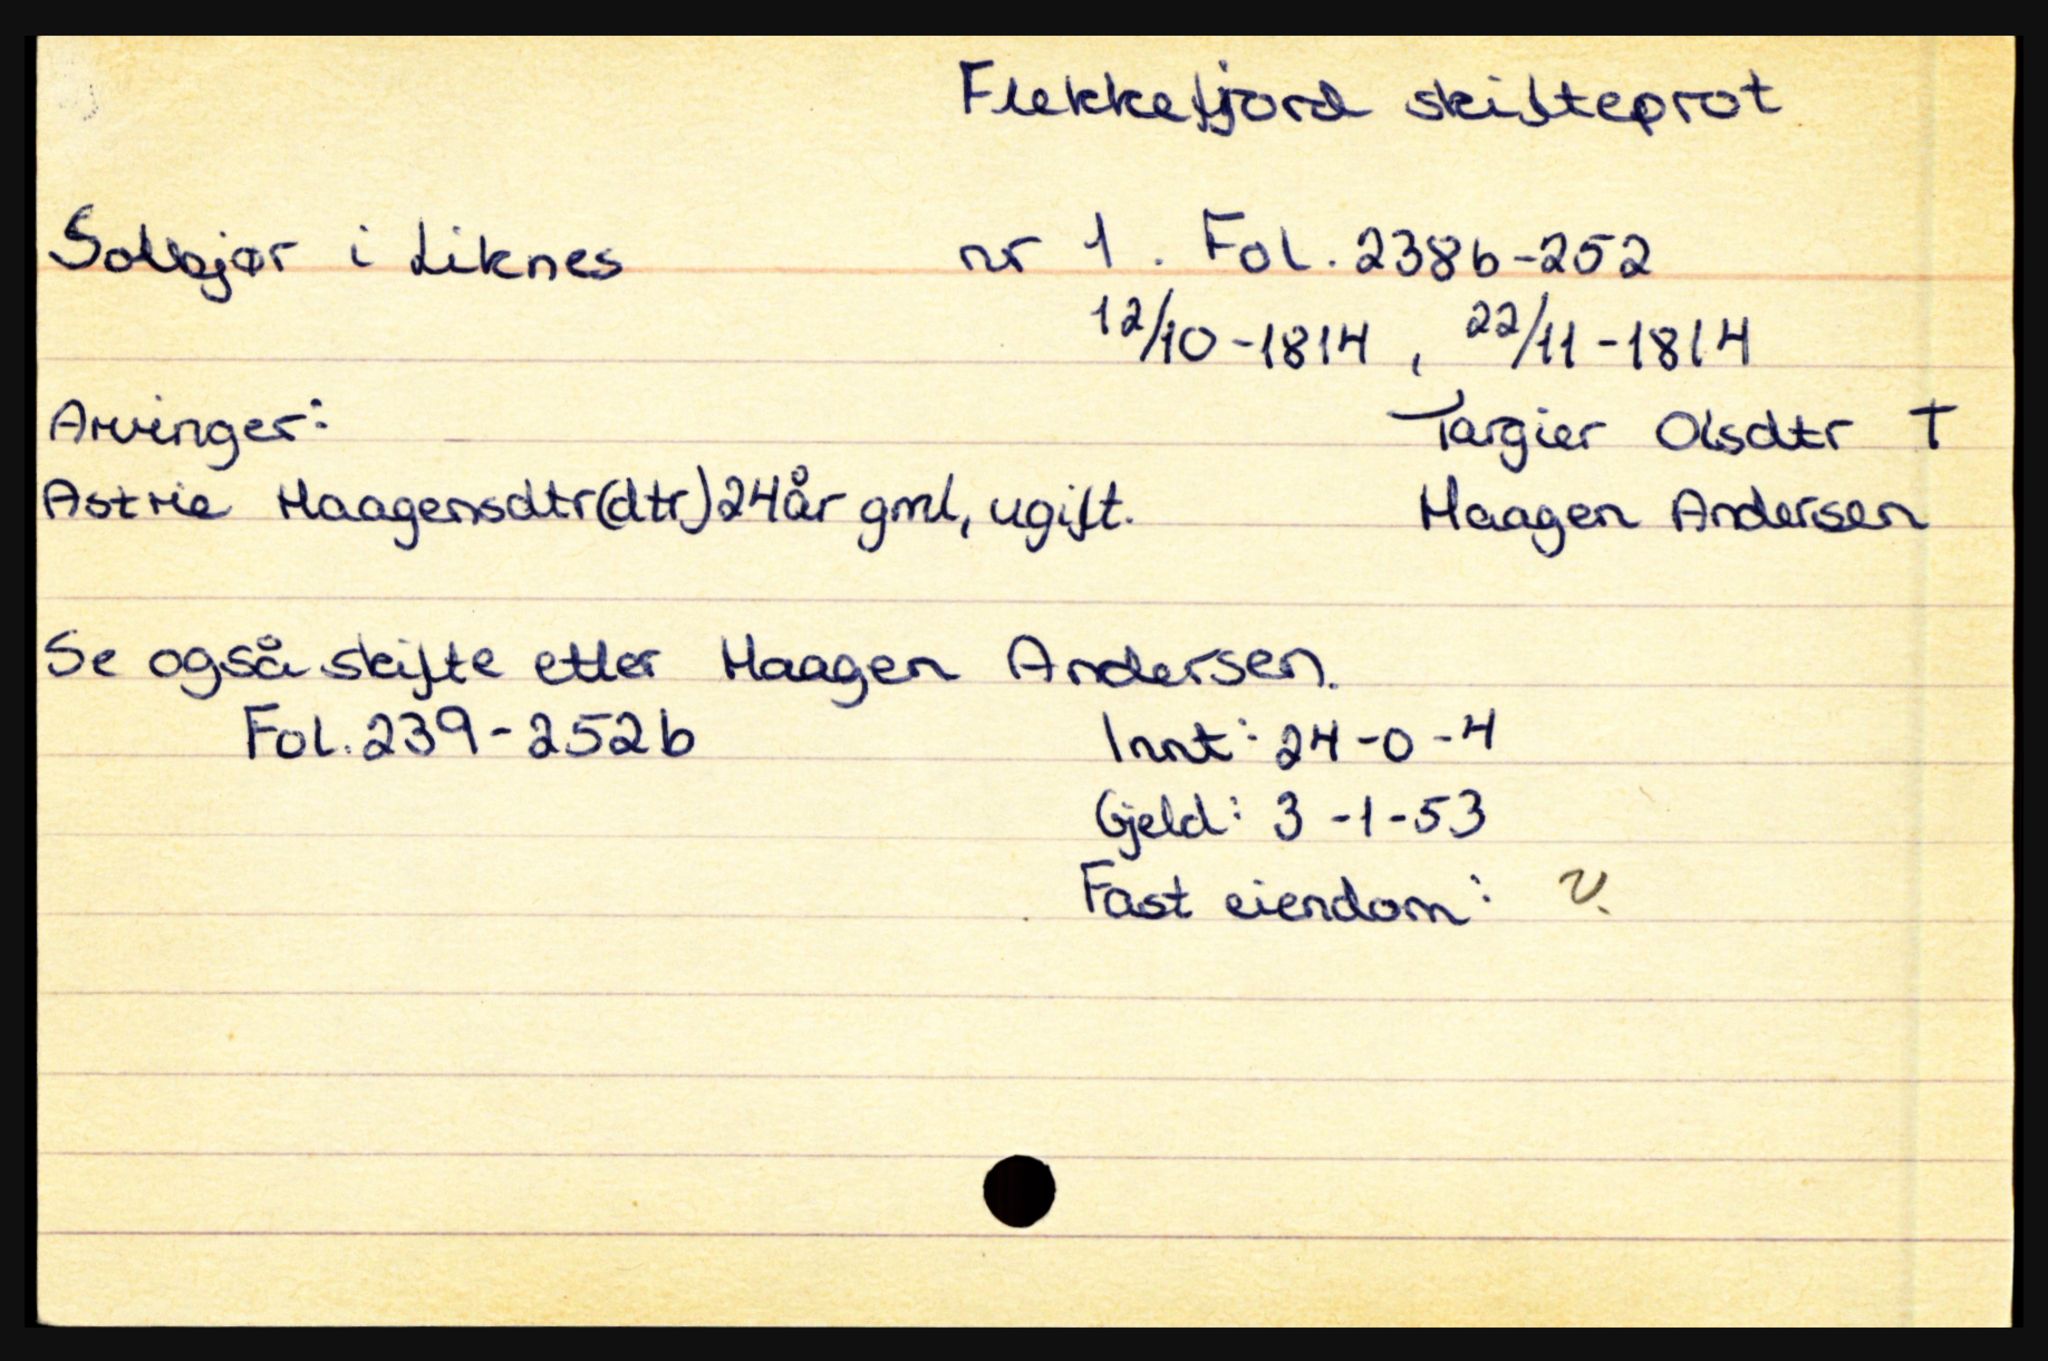 Flekkefjord skifteprot
Solbjør i Liknes nr 1. Fol. 238b-252
12/10-1814, 22/11-1814
Arvinger: Targier Olsdtr †
Astrie Haagensdtr(dtr) 24 år gml, ugift. Haagen Andersen
Se også skifte etter Haagen Andersen.
Fol. 239-252b Innt: 24-0-4
Gjeld: 3-1-53
Fast eiendom: